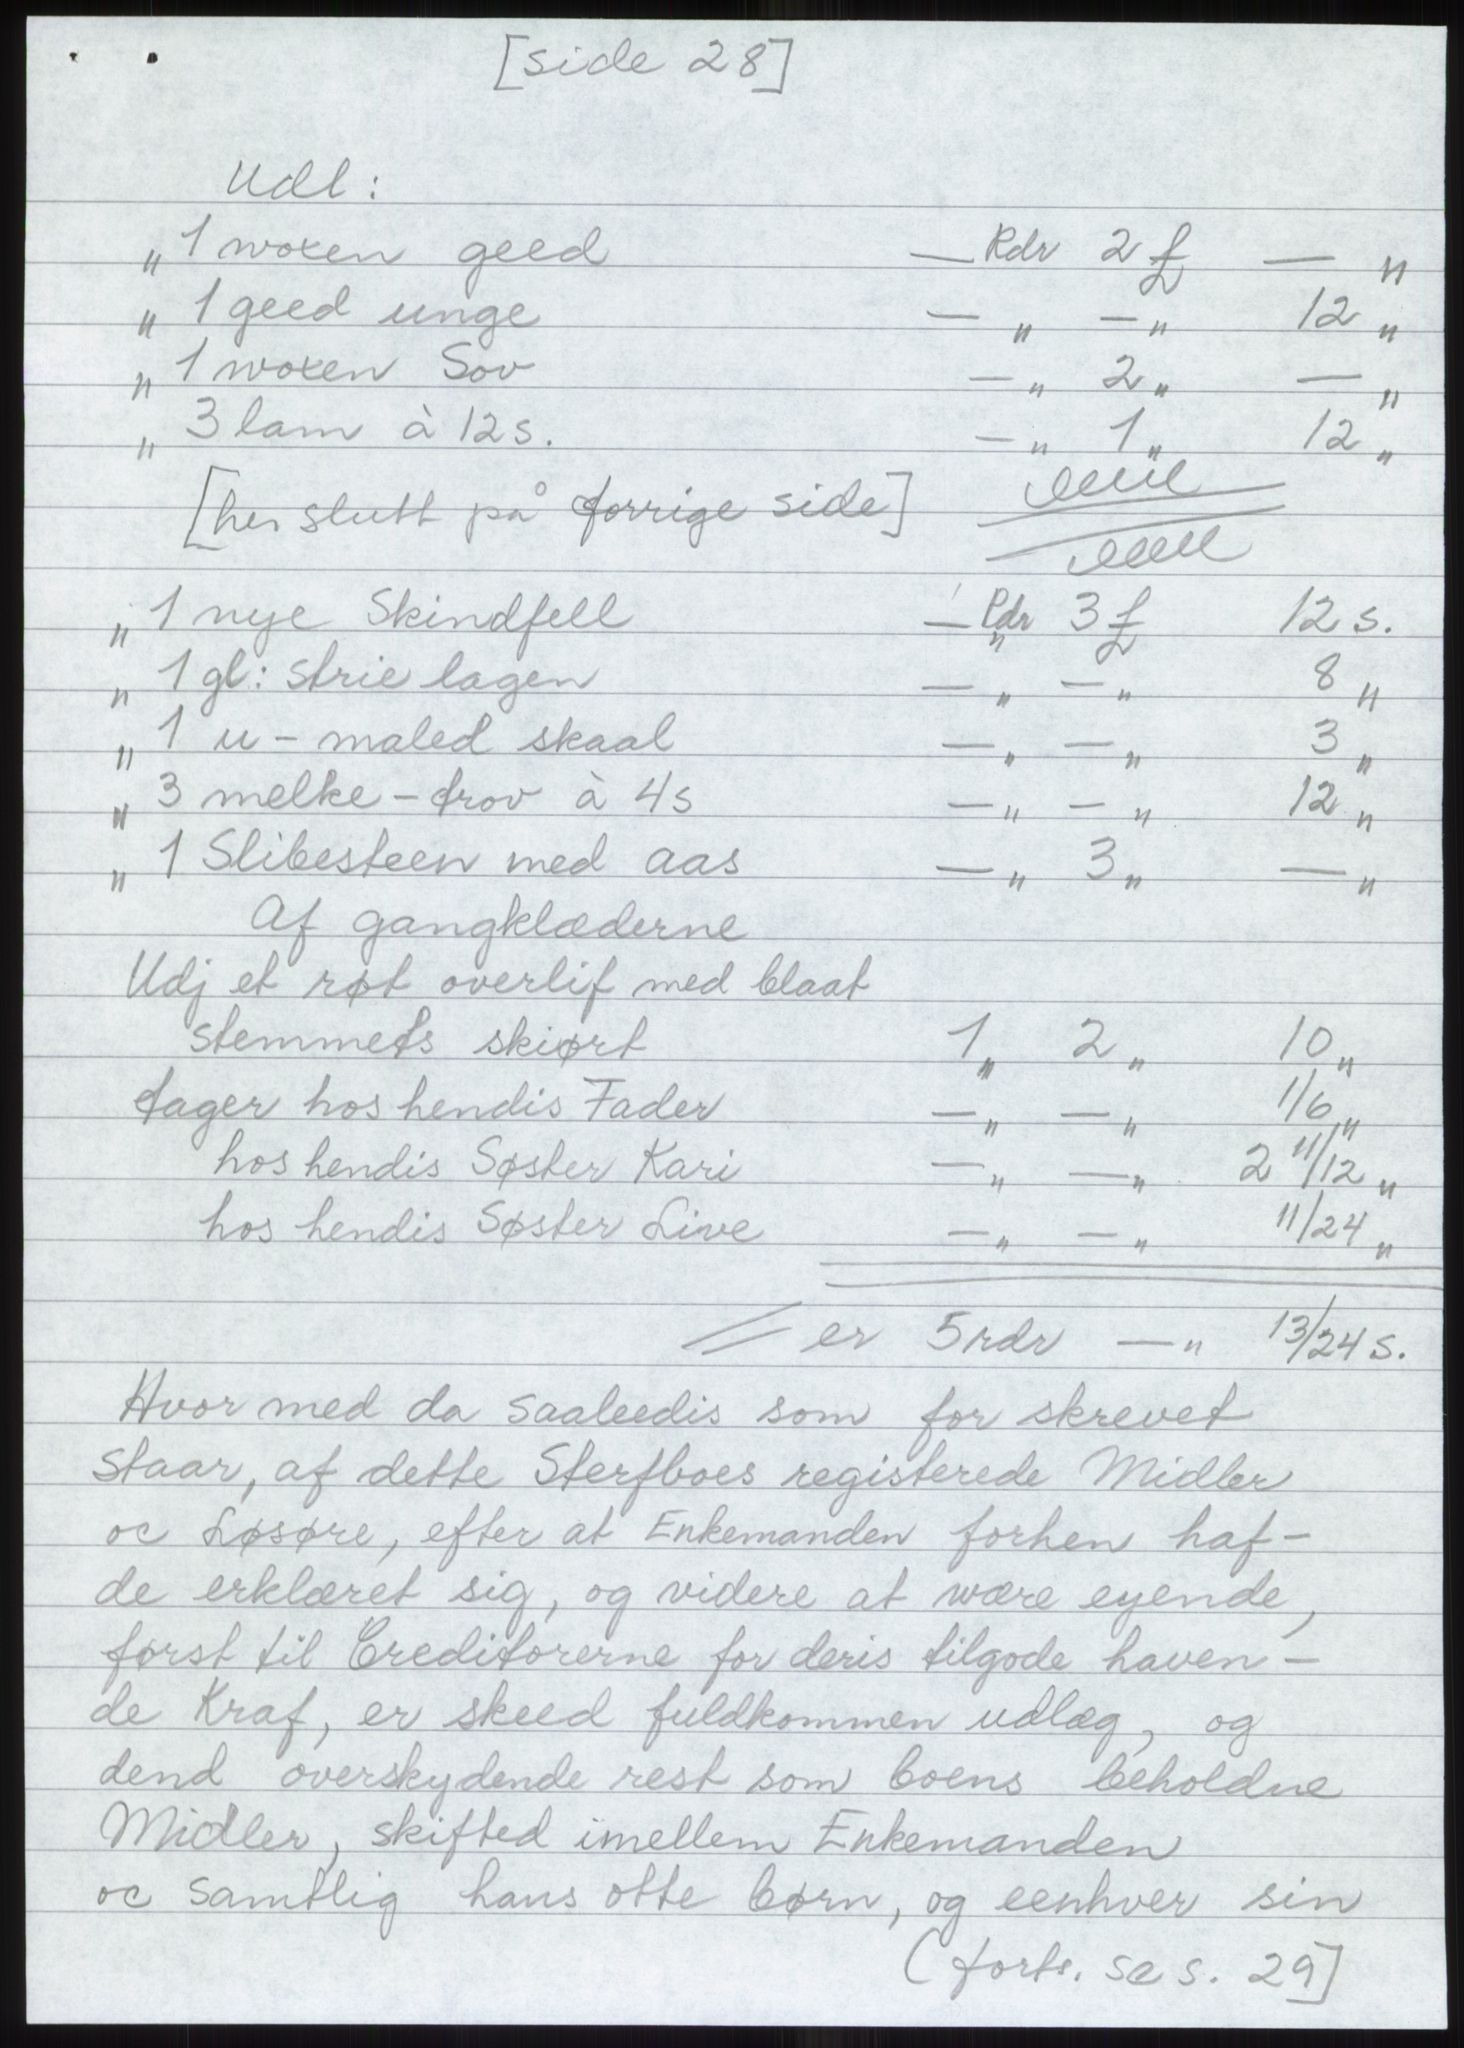 [side 28]
Udl:
" 1 woxen geed — Rdr 2 £ — "
" 1 geed unge — " — " 12 "
" 1 woxen Sov — " 2 " — "
" 3 lam à 12 s. — " 1 " 12 "
[her slutt på forrige side]
" 1 nye Skindfell — Rdr 3 £ 12 s.
" 1 gl: strie lagen — " — " 8 "
" 1 u - maled skaal — " — " 3 "
" 3 melke - trov à 4 s — " — " 12 "
" 1 Slibesteen med aas — " 3 " — "
Af gangklæderne
Udj et røt overlif med blaat
stemmets skiørt 1 " 2 " 10 "
tager hos hendis Fader — " — " 1/6 "
hos hendis Søster Kari — " — " 2 11/12 "
hos hendis Søster Live — " — " 11/24 "
er 5 rdr — " 13/24 s.
Hvor med da saaleedis som for skrevet
staar, af dette Sterfboes registerede Midler
oc Løsøre, efter at Enkemanden forhen haf-
de erklæret sig, og videre at wære eyende,
først til Creditorerne for deris tilgode haven-
de Kraf, er skeed fuldkommen udlæg, og
dend overskydende rest som boens beholdne
Midler, skifted imellem Enkemanden
oc samtlig hans otte børn, og eenhver sin
(forts. se s. 29]